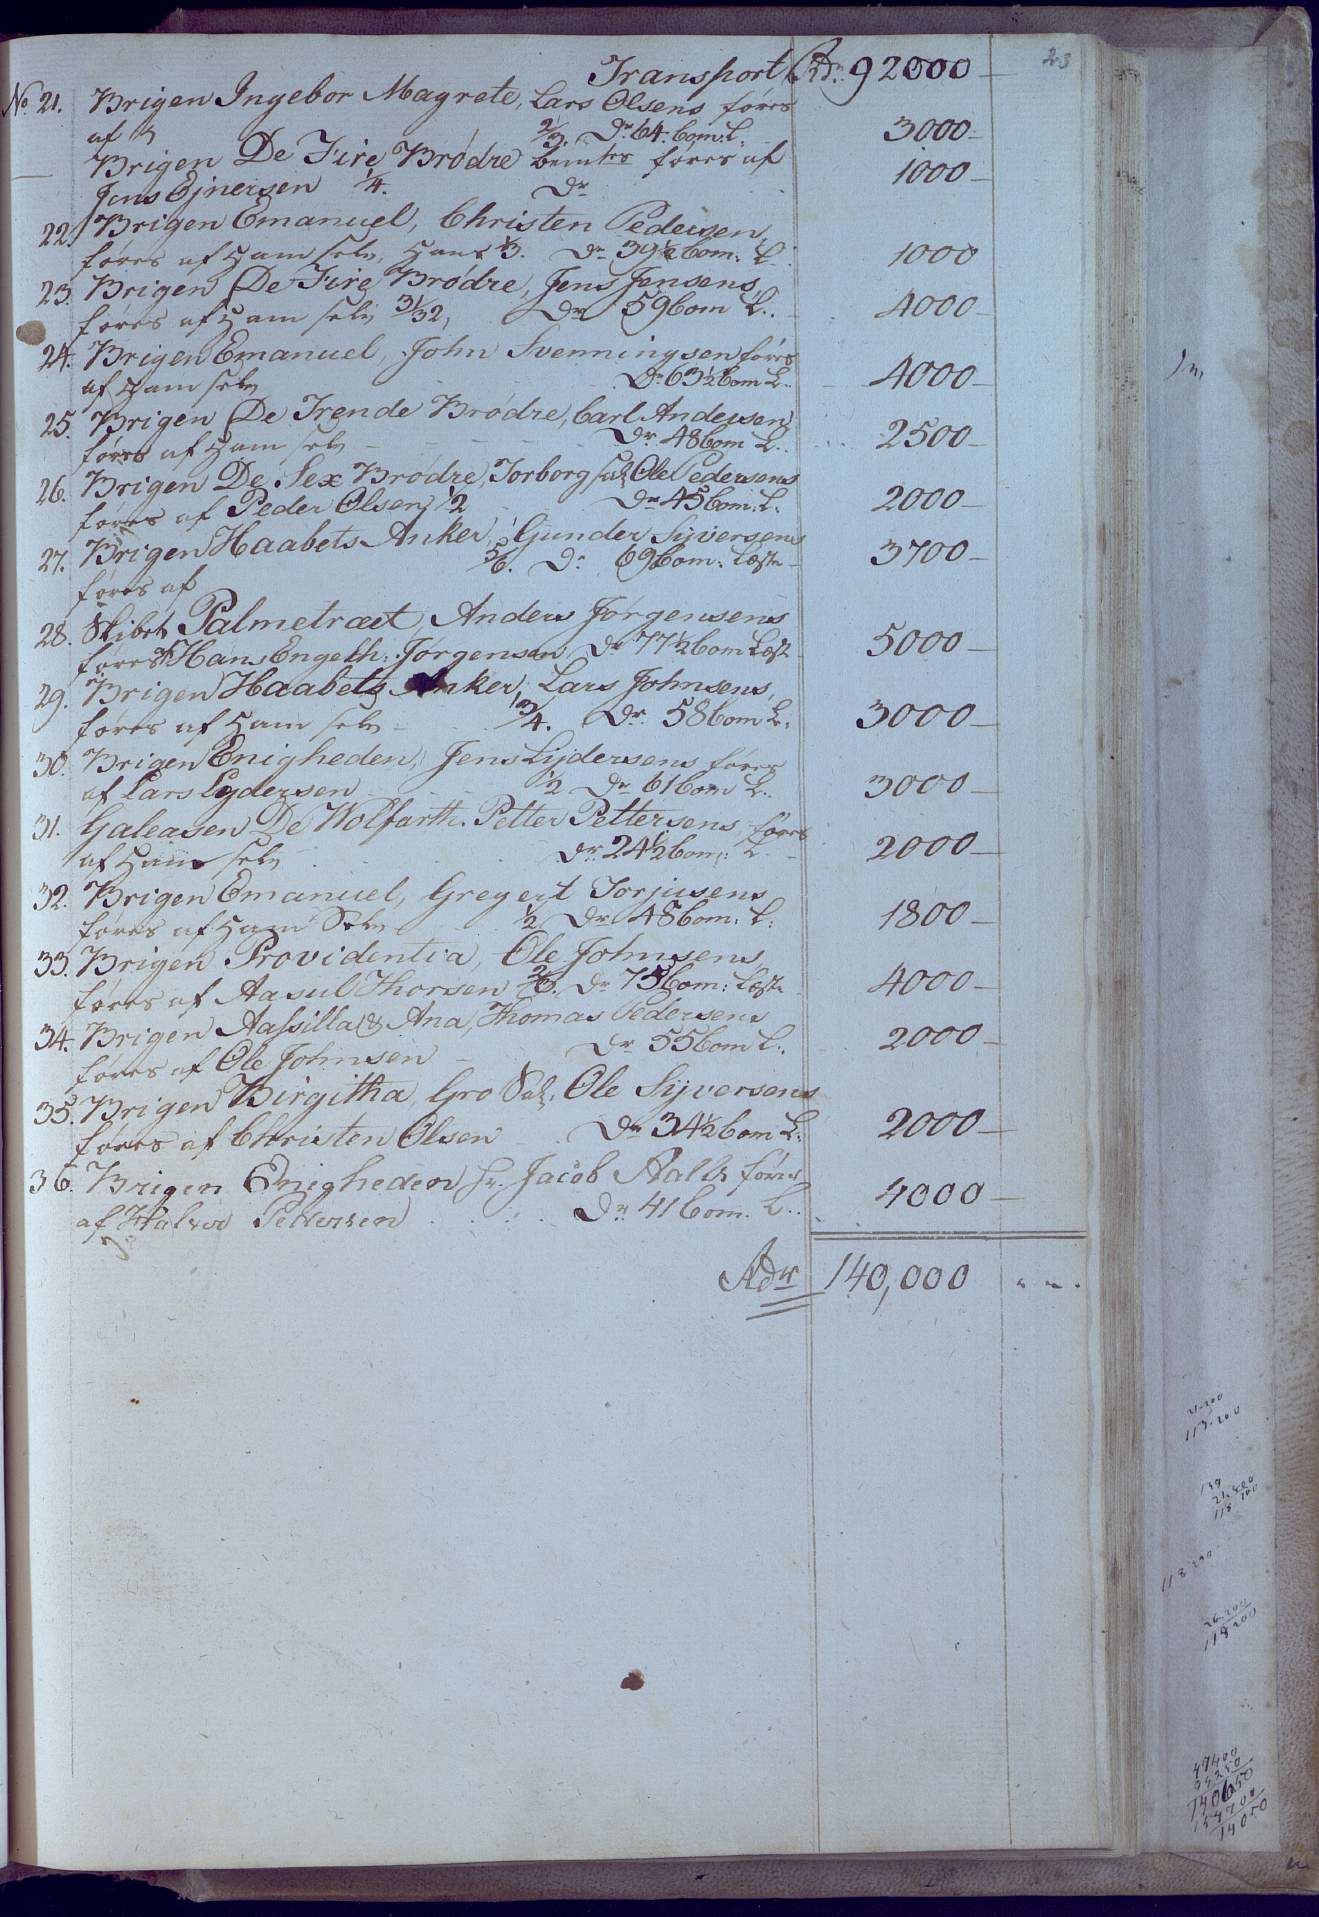 23
Transport Rdr. 92000
No 21. Brigen Ingebor Magrete, Lars Olsens føres
af 2/3. Dr 64. Com: L. 3000
Brigen De Fire Brødre bemtes føres af
Jens Ejnersen 1/4. Dr 1000
22. Brigen Emanuel, Christen Pedersen,
føres af Ham selv, Hans 1/3. Dr 39½ Com: L 1000
23. Brigen De Fire Brødre, Jens Jensens,
føres af Ham selv 31/32, Dr 59 Com L. 4000
24. Brigen Emanuel, John Svenningsen føres
af Ham selv Dr 63½ Com L. 4000
25. Brigen De Trende Brødre, Carl Andersen
føres af Ham selv Dr 48 Com L. 2500
26. Brigen De Sex Brødre, Torborg Sal. Ole Pedersens
føres af Peder Olsen, 1/2 Dr 45 Com: L. 2000
27. Brigen Haabets Anker, Gunder Syversens
føres af 5/6. Dr 69 Com: Læste 3700
28. Skibet Palmetræet, Anders Jørgensens
føres af Hans Engeth: Jørgensen Dr 77½ Com Læst 5000
29. Brigen Haabets Anker, Lars Johnsens,
føres af Ham selv 3/4. Dr. 58 Com L. 3000
30. Brigen Enigheden, Jens Lydersens føres
af Lars Lydersen 1/2 Dr 61 Com L. 3000
31. Galeasen De Wolfarth. Petter Pettersens føres
af Ham selv Dr 24½ Com: L 2000
32. Brigen Emanuel, Gregert Torjusens
føres af Ham Selv 1/2 Dr 48 Com: L: 1800
33. Brigen Providentia, Ole Johnsens
føres af Aasul Thorsen Dr 75 Com: Læste 4000
34. Brigen Aassilla & Ana, Thomas Pedersens
føres af Ole Johnsen Dr 55 Com L. 2000
35. Brigen Birgitha, Gro Sal. Ole Syversens
føres af Christen Olsen Dr 34½ Com L: 2000
36. Brigen Enigheden Hr. Jacob Aalls føres
af Halvor Pettersen Dr 41 Com. L. 4000
Rdr 140,000
21.200
113.200
139
21.200
118 100
118 200
26.200
118200
47400
140650
14050